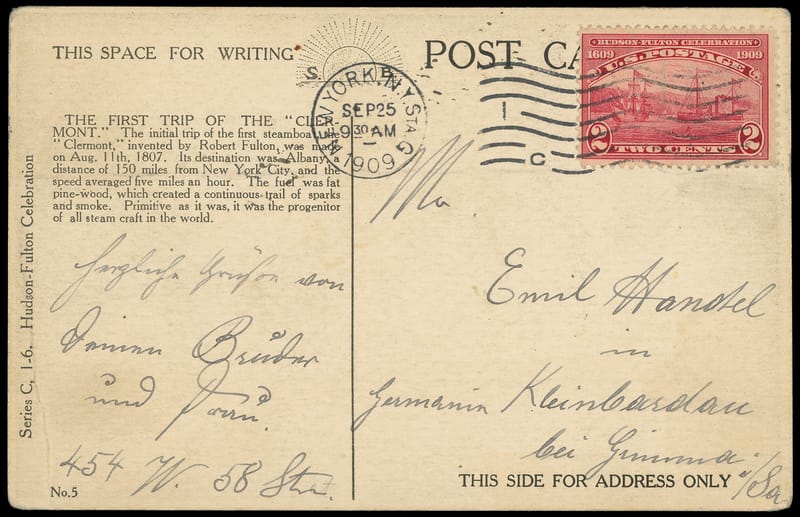 THIS SPACE FOR WRITING
POST CA
S. B.
NEW YORK, N.Y. STA. G
SEP 25
9 30 AM
1909
C
HUDSON-FULTON CELEBRATION
1609 1909
U.S. POSTAGE
2 2
TWO CENTS
THE FIRST TRIP OF THE "CLER-
MONT." The initial trip of the first steamboat, the
"Clermont," invented by Robert Fulton, was made
on Aug. 11th, 1807. Its destination was Albany, a
distance of 150 miles from New York City, and the
speed averaged five miles an hour. The fuel was fat
pine-wood, which created a continuous trail of sparks
and smoke. Primitive as it was, it was the progenitor
of all steam craft in the world.
Series C, 1-6. Hudson-Fulton Celebration
herzliche Grüße von
Deinen Bruder
und Frau.
454 W. 58 Str.
No. 5
Emil Handel
in
Germania Kleinbardau
bei Grimma i/Sa
THIS SIDE FOR ADDRESS ONLY